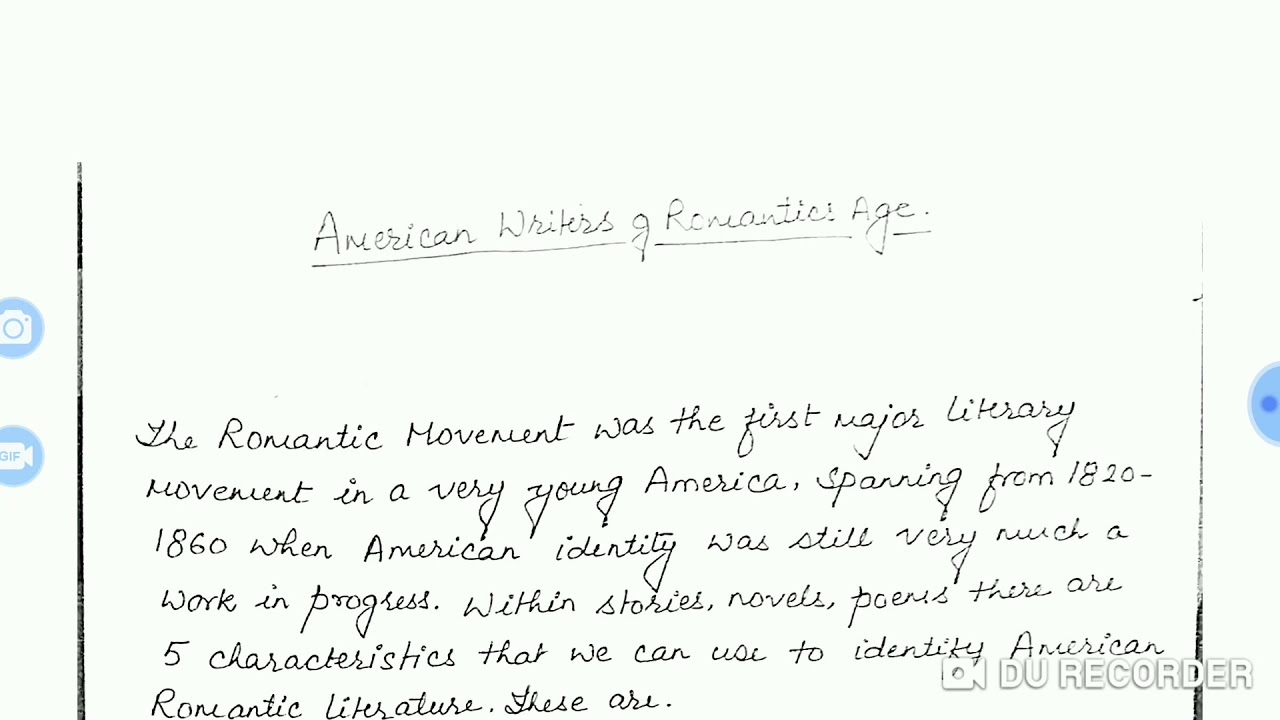 American Writers of Romantics Age.
The Romantic Movement was the first major literary
movement in a very young America, spanning from 1820-
1860 when American identity was still very much a
work in progress. Within stories, novels, poems there are
5 characteristics that we can use to identity American
Romantic literature. These are.
GIF
DU RECORDER